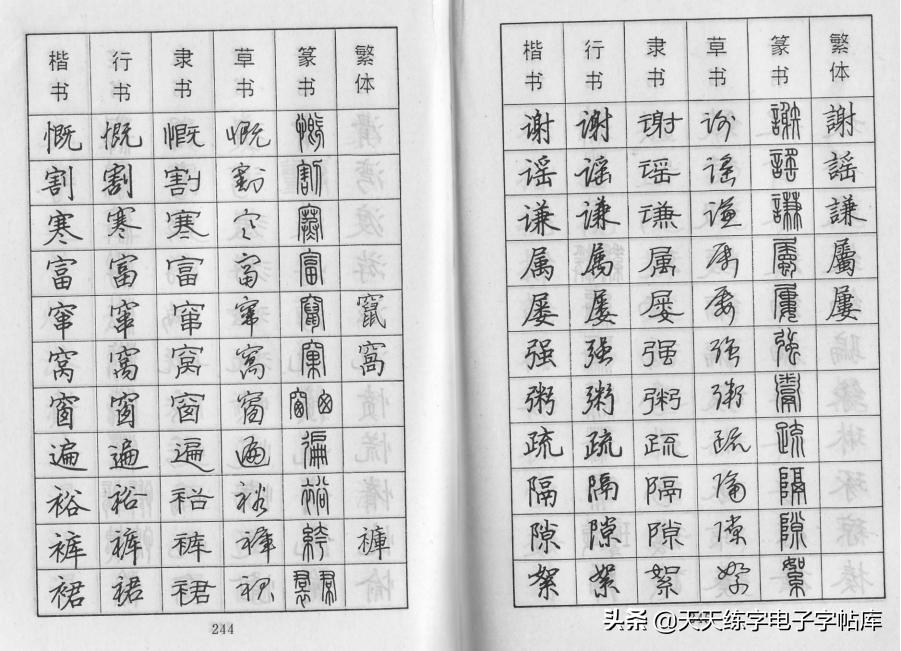 楷书 行书 隶书 草书 篆书 繁体
慨 慨 慨 慨 慨
割 割 割 割 割
寒 寒 寒 寒 寒
富 富 富 富 富
窜 窜 窜 窜 竄 竄
窝 窝 窝 窝 窩
窗 窗 窗 窗 窗 囱
遍 遍 遍 遍
裕 裕 裕 裕 裕
裤 裤 裤 裤 絝 褲
裙 裙 裙 裙
244
楷书 行书 隶书 草书 篆书 繁体
谢 谢 谢 谢 謝 謝
谣 谣 谣 谣 謠 謠
谦 谦 谦 谦 謙 謙
属 属 属 属 屬 屬
屡 屡 屡 屡 屢 屢
强 强 强 强 强
粥 粥 粥 粥 粥
疏 疏 疏 疏 疏
隔 隔 隔 隔 隔
隙 隙 隙 隙 隙
絮 絮 絮 絮 絮
头条 @天天练字电子字帖库